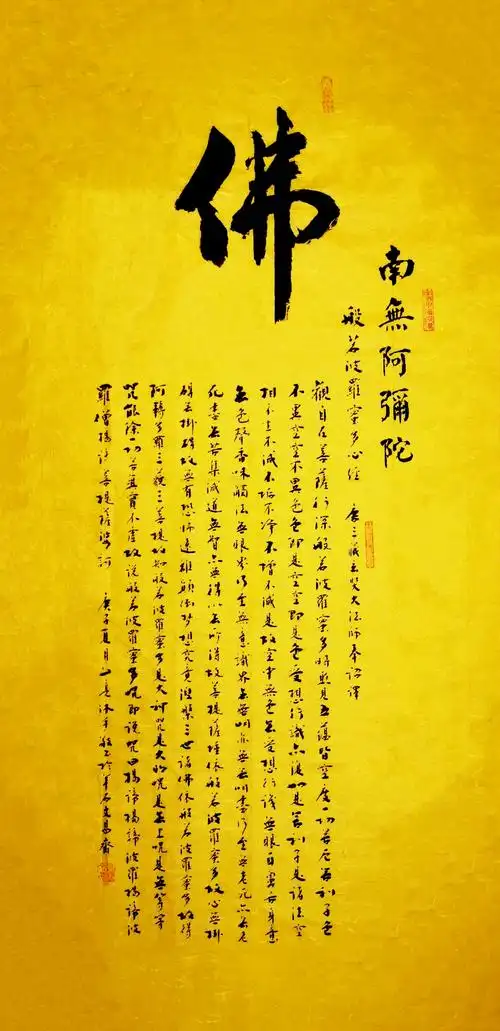 佛
南無阿彌陀
般若波羅蜜多心經 唐三藏玄奘大法師奉詔譯
觀自在菩薩行深般若波羅蜜多時照見五蘊皆空度一切苦厄舍利子色
不異空空不異色色即是空空即是色受想行識亦復如是舍利子是諸法空
相不生不滅不垢不淨不增不減是故空中無色无受想行識無眼耳鼻舌身意
无色聲香味觸法无眼界乃至無意識界无無明亦無无明盡乃至無老死亦无老
死盡无苦集滅道無智亦無得以无所得故菩提薩埵依般若波羅蜜多故心無掛
礙无掛礙故無有恐怖遠離顛倒夢想究竟涅槃三世諸佛依般若波羅蜜多故得
阿耨多羅三藐三菩提故知般若波羅蜜多是大神咒是大明咒是无上咒是無等等
咒能除一切苦真實不虛故說般若波羅蜜多咒即說咒曰揭諦揭諦波羅揭諦波
羅僧揭諦菩提薩婆訶 庚子夏月